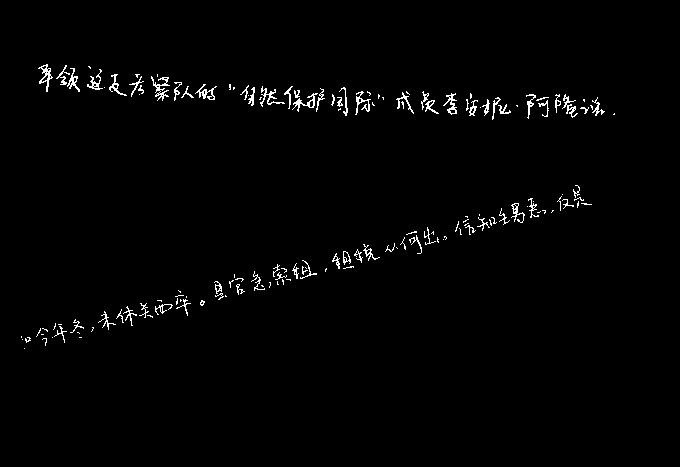 率领这支考察队的“自然保护国际”成员李安妮·阿隆说.
如今年冬,未休关西卒。县官急索组,组税从何出。信知生男恶,反是